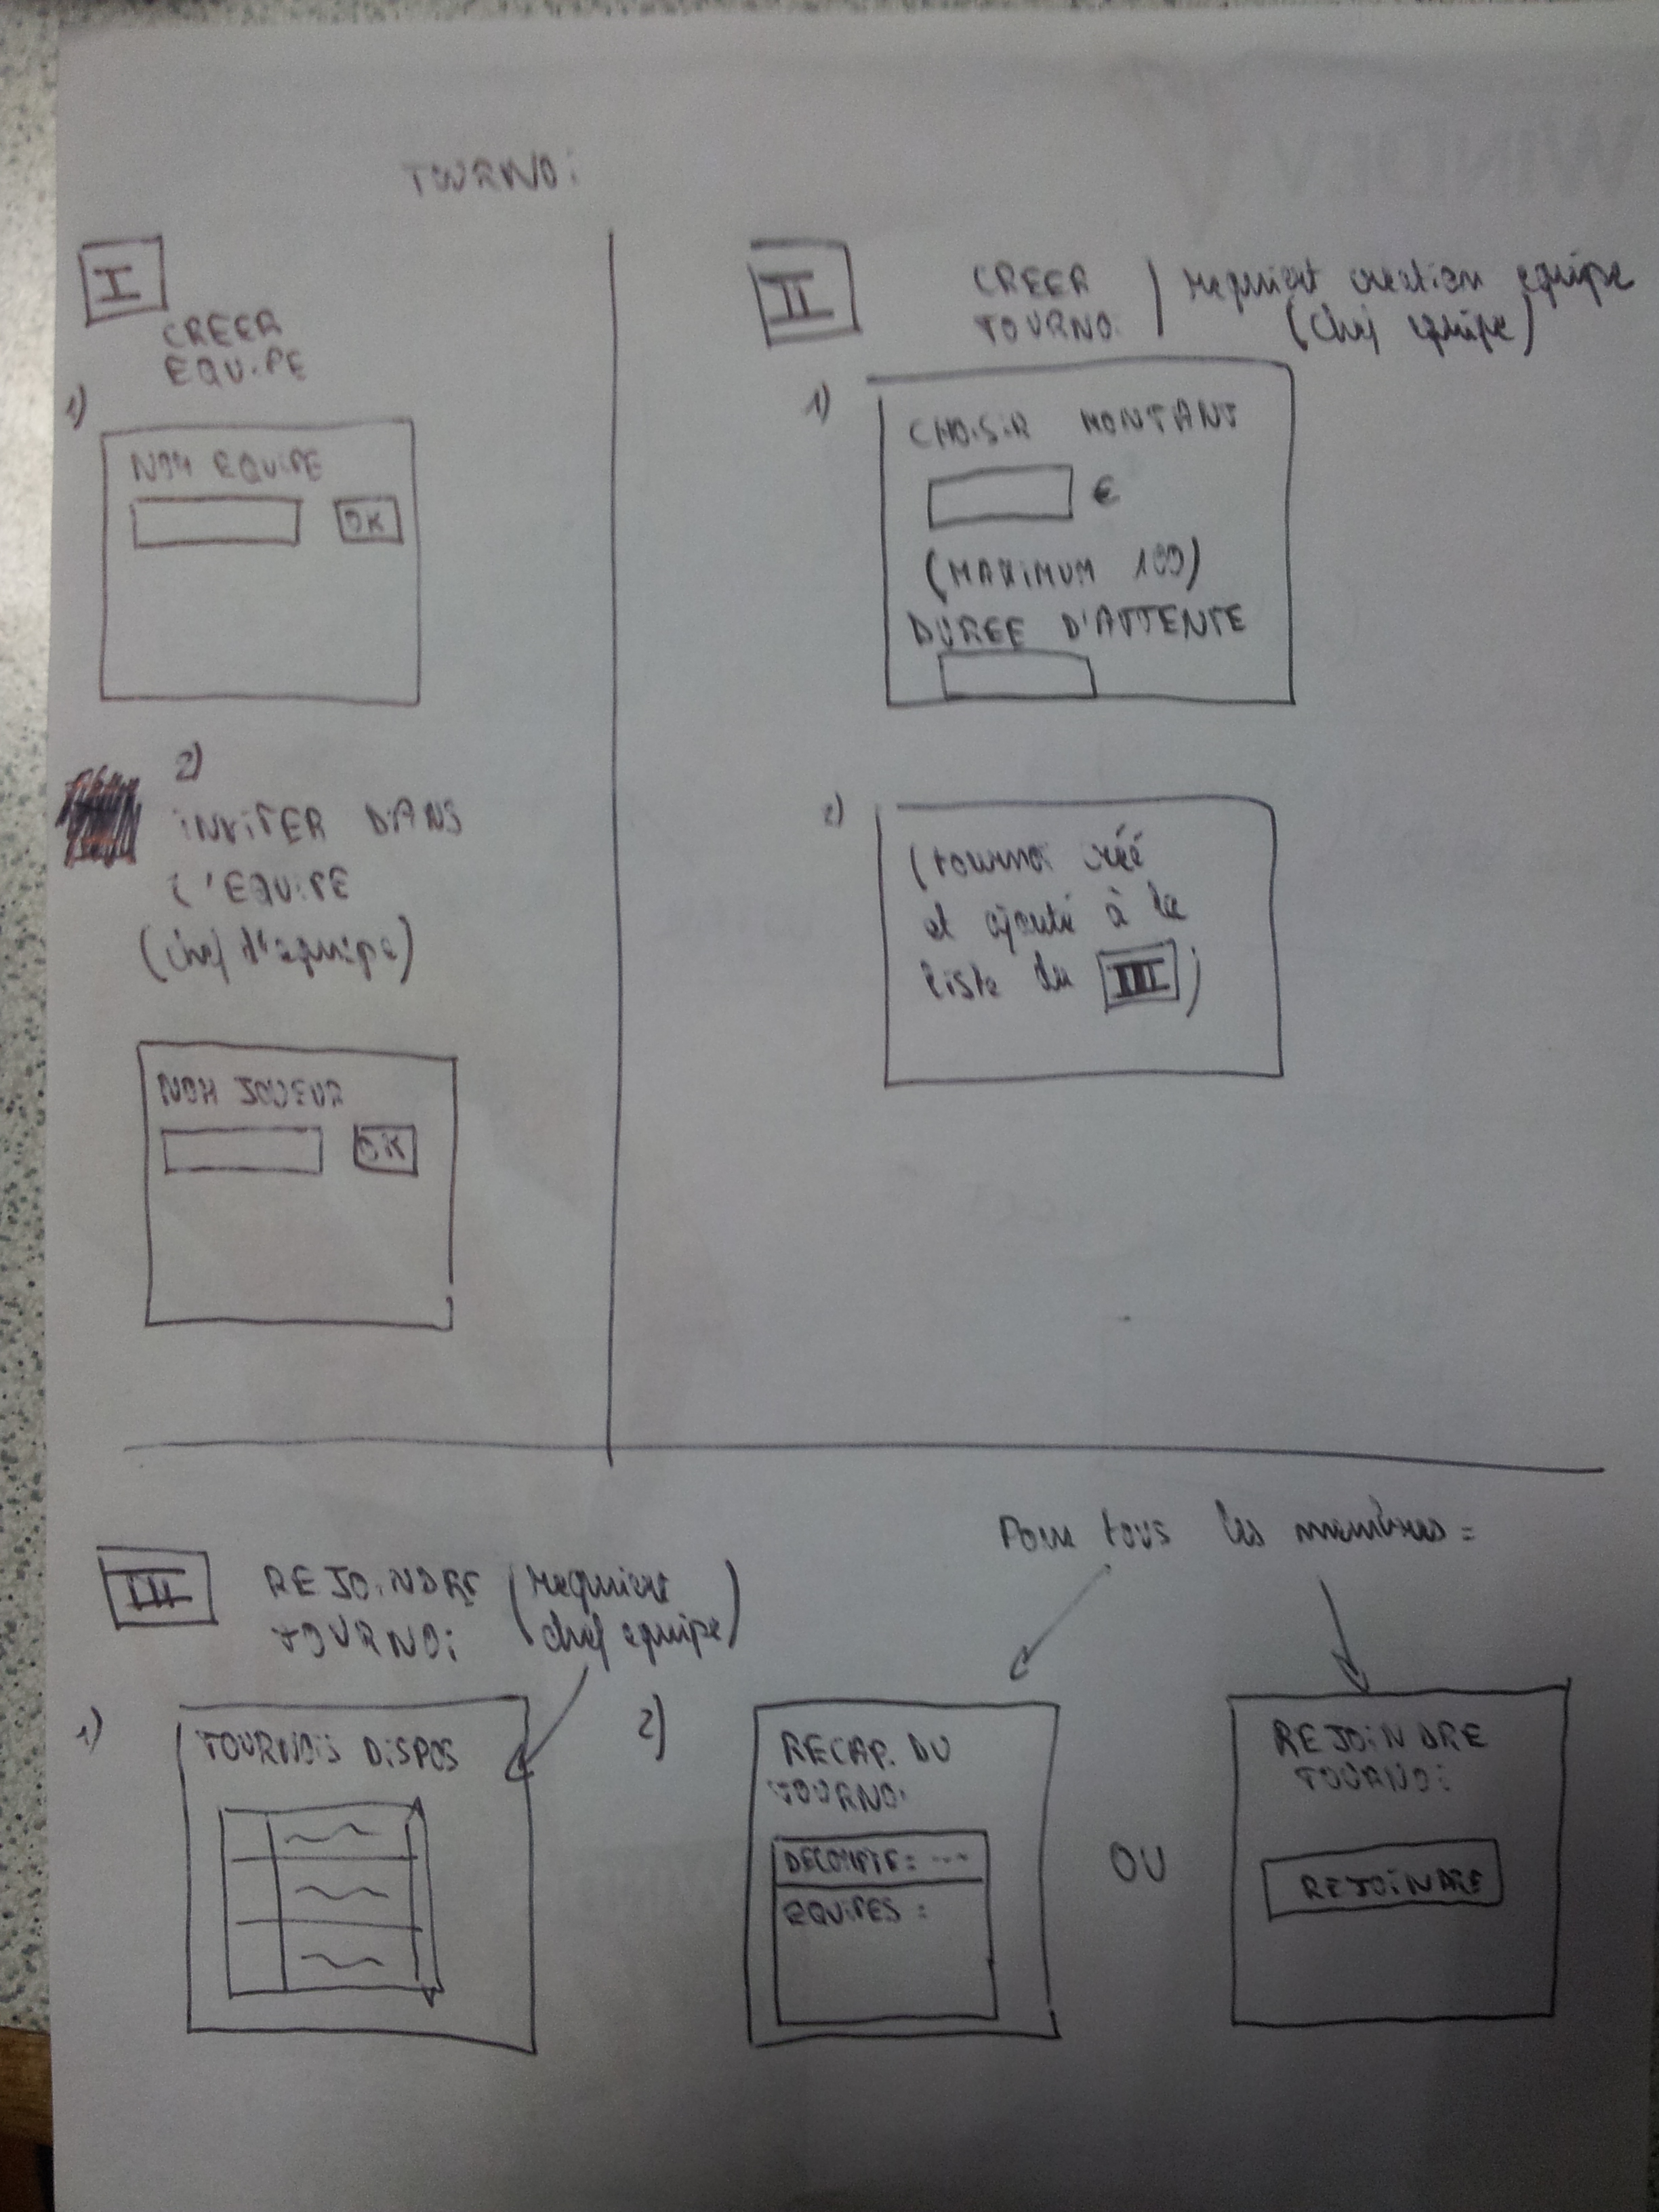 TOURNOi
I
CREER
EQUiPE
1)
NOM EQUiPE
OK
2)
iNViTER DANS
L'EQUiPE
(chef d'equipe)
NOM JOUEUR
OK
II
CREER
TOURNOi
requiert creation equipe
(chef equipe)
1)
CHOiSiR MONTANT
€
(MAXiMUM 100)
DUREE D'ATTENTE
2)
(tournoi créé
et ajouté à la
liste du III)
III
REJOiNDRE
TOURNOi
(requiert
chef equipe)
1)
TOURNOiS DiSPOS
Pour tous les membres :
2)
RECAP. DU
TOURNOi
DECOMPTE : ---
EQUiPES :
OU
REJOiNDRE
TOURNOi
REJOiNDRE